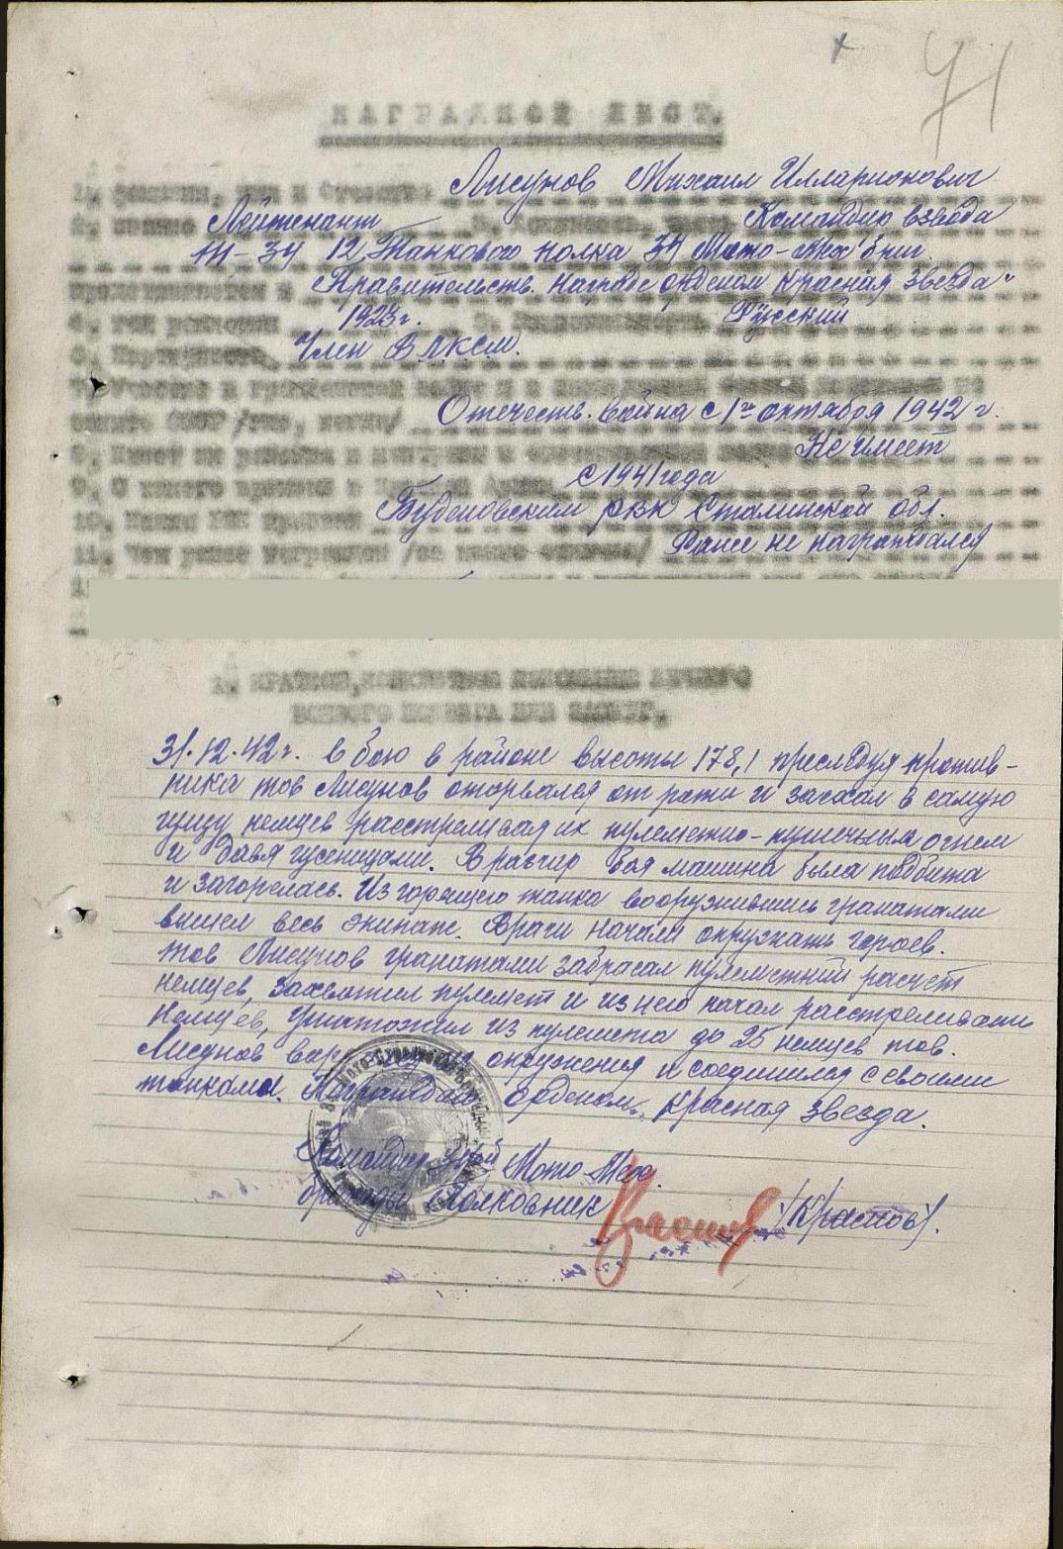 71
НАГРАДНОЙ ЛИСТ.
1. Фамилия, имя и Отчество Лисунов Михаил Илларионович
2. звание Лейтенант Командир взвода
Т-34 12 Танкового полка 34 Мото-Мех бриг.
Представляется к Правительств. награде орденом Красная Звезда"
4. Год рождения 1923 г. 5. Национальность Русский
6. Партийность Член ВЛКСМ.
7. Участие в гражданской войне и
защите СССР /где, когда/ Отечеств. война с 1го октября 1942 г.
8. Имеет ли ранения и контузии в Не имеет
9. С какого времени в Красной Армии с 1941 года
10. Каким РВК призван Буденовским РВК Сталинской обл.
11. Чем ранее награжден /за какие отличия/ Ранее не награждался
1. КРАТКОЕ, КОНКРЕТНОЕ ИЗЛОЖЕНИЕ ЛИЧНОГО
БОЕВОГО ПОДВИГА ИЛИ ЗАСЛУГ.
31.12.42 г. в бою в районе высоты 178,1 преследуя против-
ника тов Лисунов оторвался от роты и заехал в самую
гущу немцев расстреливая их пулеметно-пушечным огнем
и давя гусеницами. В разгар боя машина была подбита
и загорелась. Из горящего танка вооружившись гранатами
вышел весь экипаж. Враги начали окружать героев.
тов Лисунов гранатами забросал пулеметний расчет
немцев, захватил пулемет и из него начал расстреливать
Немцев, Уничтожил из пулемета до 25 немцев тов.
Лисунов окружения и соединился с своими
танками. Награждаю орденом Красная звезда.
Командир 34й Мото Мех.
бригады Полковник /Краснов/.